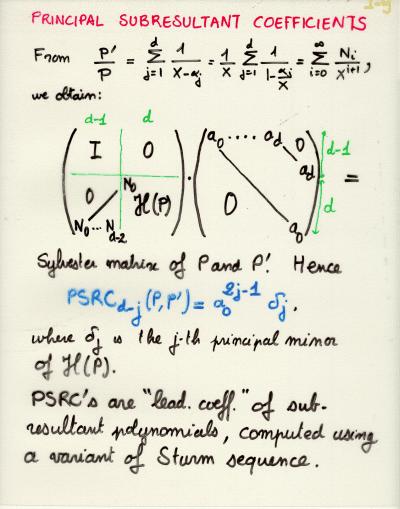 PRINCIPAL SUBRESULTANT COEFFICIENTS
From P'/P = Σ_{j=1}^{d} 1/(x-αj) = 1/x Σ_{j=1}^{d} 1/(1-αj/x) = Σ_{i=0}^{∞} Ni/x^{i+1},
we obtain:
d-1 d
I 0 a0 .... ad 0 d-1
ad =
0 N0 H(P) 0 d
N0 ... Nd-2 a0
Sylvester matrix of P and P'. Hence
PSRC_{d-j}(P,P') = a0^{2j-1} δj,
where δj is the j-th principal minor
of H(P).
PSRC's are "lead. coeff." of sub-
resultant polynomials, computed using
a variant of Sturm sequence.